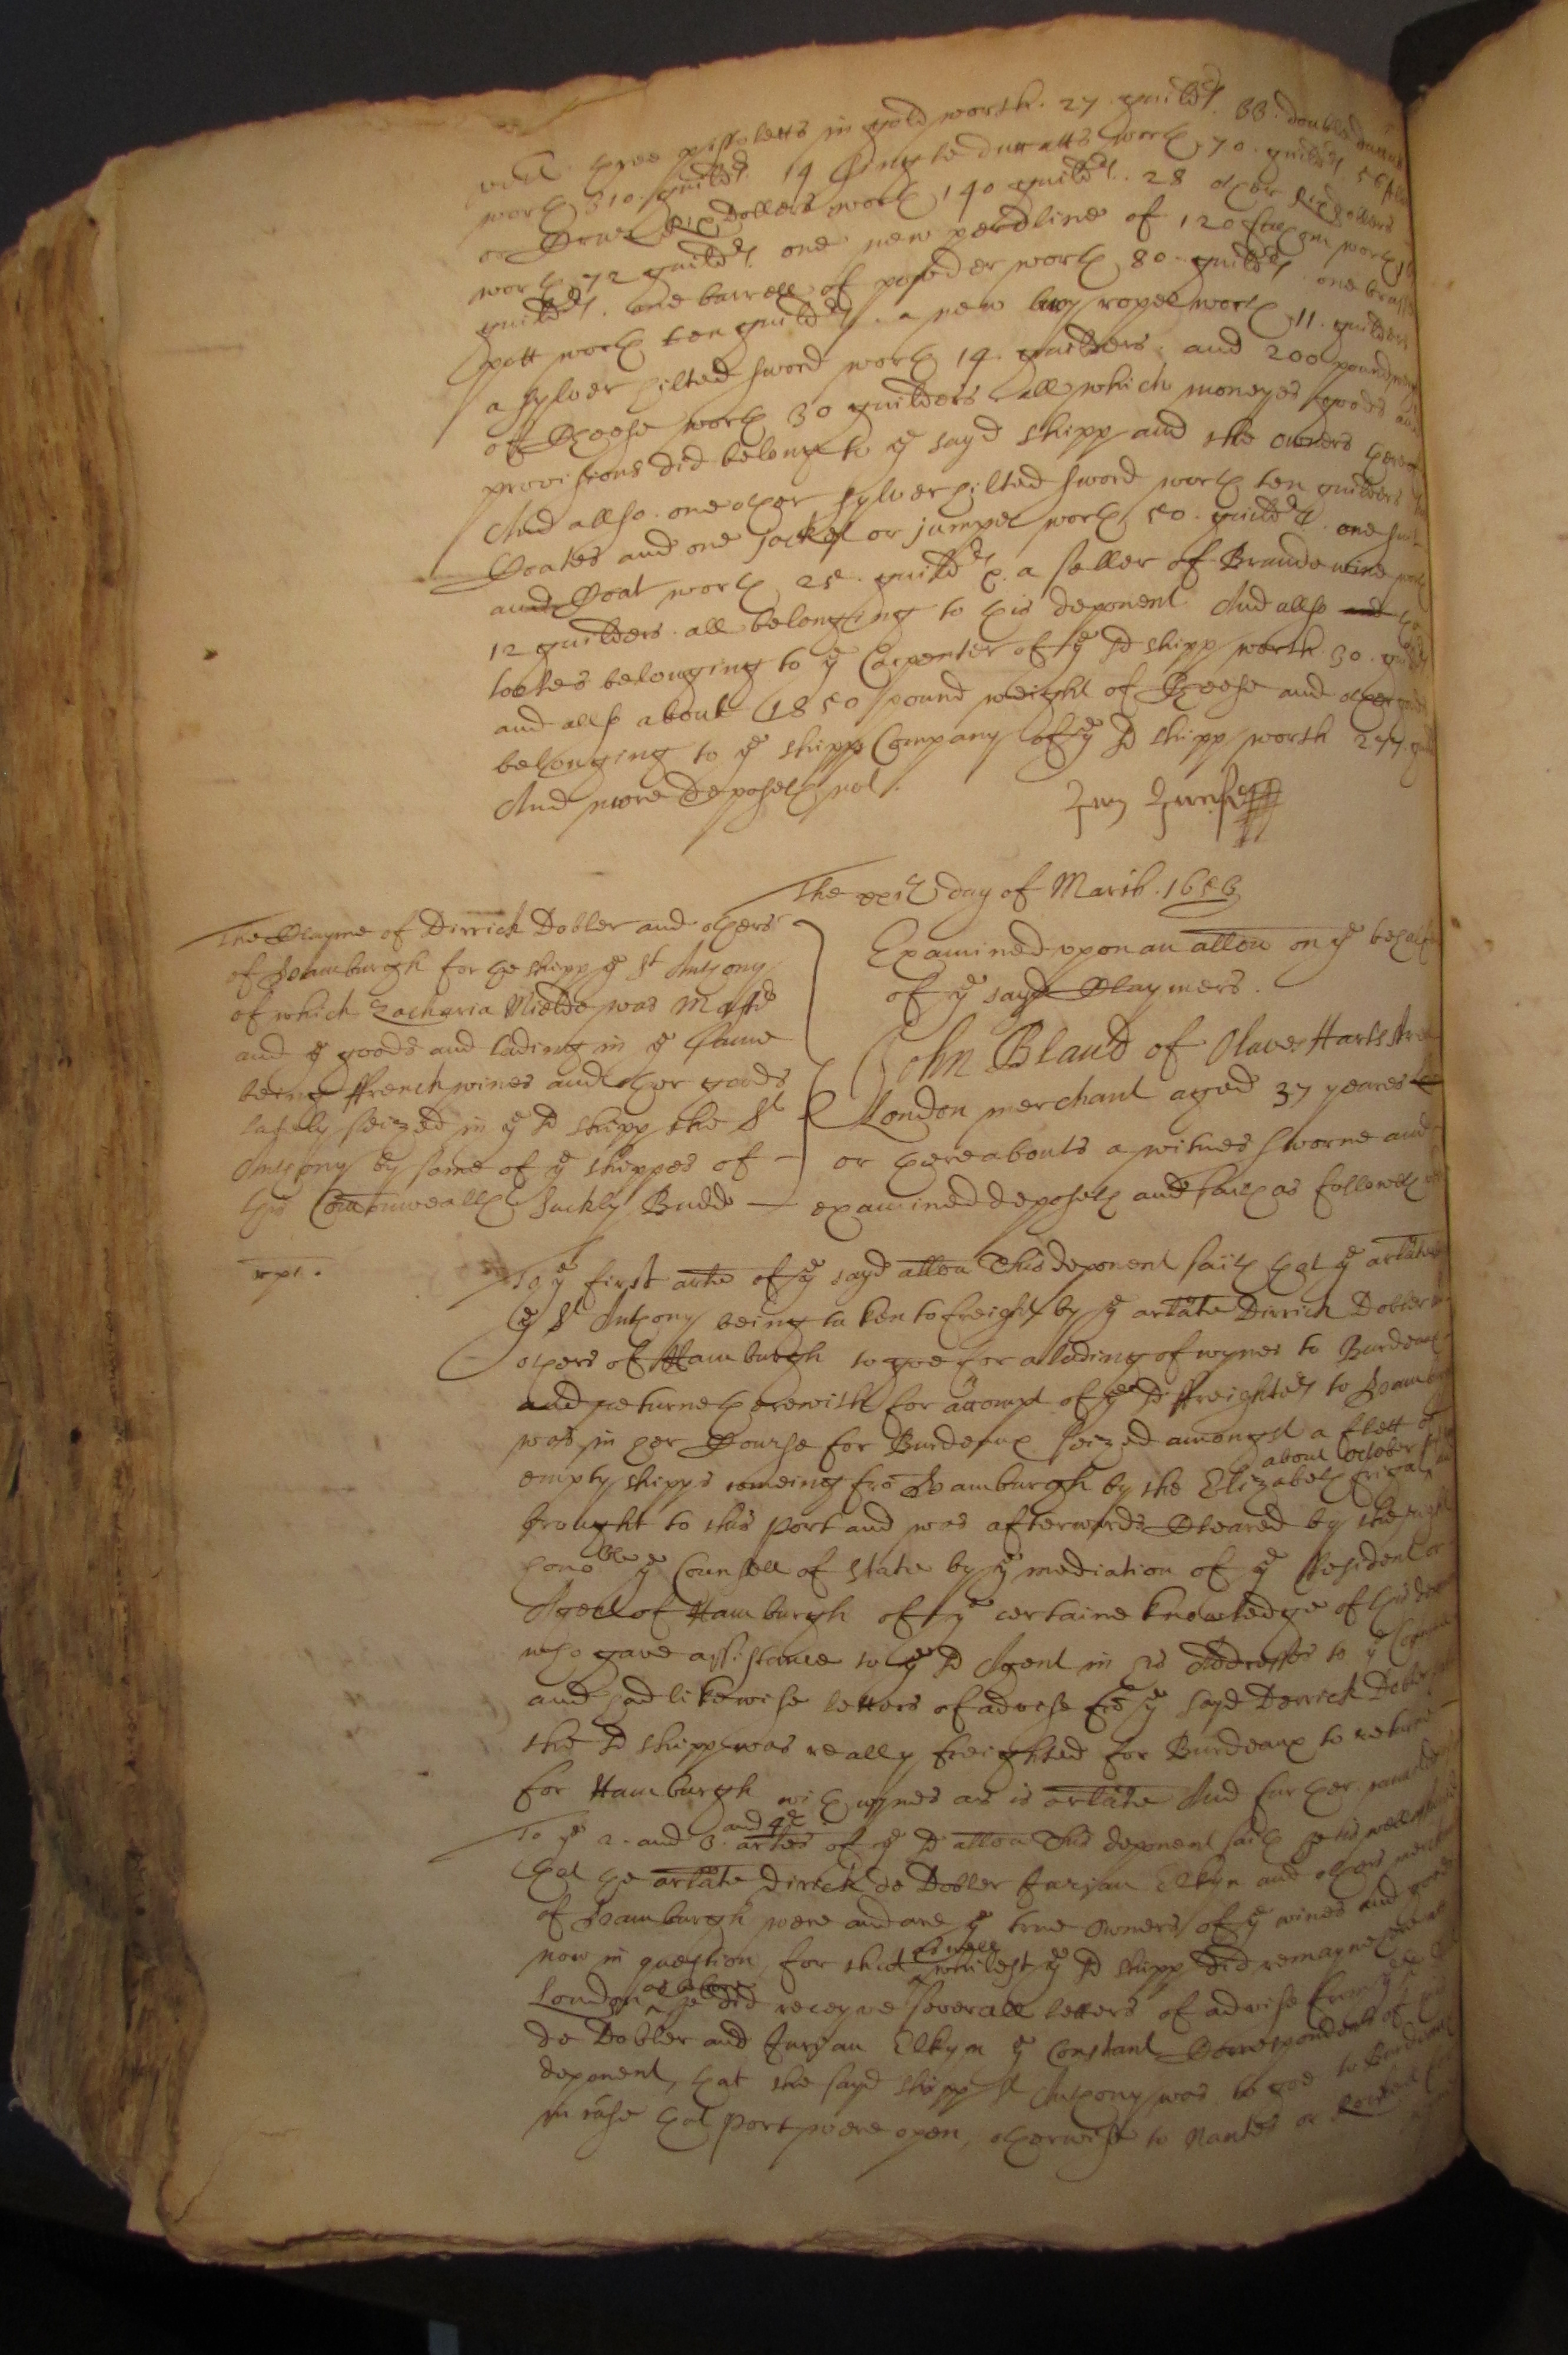 vizt. three pistoletts in gold worth. 27. guildrs. 33. double ducatts
worth 310. guildrs. 14 single ducatts worth 70. guildrs 56
or Rix Dollers worth 140 guildrs. 28 other Rix dollers
worth 72 guildrs. one new peedline of 120 worth
guildrs. one barrell of powder worth 80. guildrs. one brasse
pott worth ten guildrs. a new buy rope worth 11. guilders
a sylver hilted sword worth 14. guilders. and 200 pound
of Cheese worth 30 guilders all which moneyes goods and
provisions did belong to ye sayd shipp and the owners thereof
And allso. one other sylver hilted sword worth ten guilders
Coates and one Jackett or jumpe worth 50. guildrs. one suit
and Coat worth 25. guildrs. a seller of Brandewine
12 guilders. all belonging to this deponent And allso
tooles belonging to ye Carpenter of ye sd shipp worth 30.
and allso about 1850 pound weight of Cheese and other
belonging to ye shipps Company of ye sd shipp worth 277.
And more deposeth not.
The day of March. 1656
The Clayme of Dirrick Dobler and others
of Hamburgh for the shipp ye St Anthony
of which Zacharia Nielde was Mastr
and ye goods and lading in ye same
being ffrench wines and other goods
lately seized in ye sd shipp the St
Anthony by some of ye shippes of
this Commonwealth Suckly Budd
Examined upon an allon on ye behalfe
of ye sayd Claymers.
John Bland of Olaves Harts streete
London merchant aged 37 yeares
or thereabouts a witnes sworne and
examined deposeth and saith as followeth
rpt.
To ye first artle of ye sayd allon This deponent saith that ye artlate
ye St Anthony being taken to freight by ye artlate Dirrick Dobler
others of Hamburgh to goe for a lading of wynes to Burdeaux
and returne therewith for accompt of ye sd ffreighters to Hamburgh
was in her Course for Burdeaux seized amongst a fleet of
empty shipps comeing fro Hamburgh by the Elizabeth frigat about October
brought to this Port and was afterwards Cleared by the right
honoble ye Counsell of State by ye mediation of ye Resident or
Agent of Hamburgh of ye certaine knowledge of this
who gave assistance to ye sd Agent in his Addresses to ye
and had likewise letters of advise fro ye sayd Derrick Dobler
the sd shipp was really freighted for Burdeaux to returne
for Hamburgh with wynes as is artlate And further
To ye 2. and 3. and 4th artles of ye sd allon This deponent saith he
that the artlate Dirrick de Dobler Jurjan Elkyn and others
of Hamburgh were and are ye true Owners of ye wines and goods
now in question for that as well whilest ye sd shipp did remayne here at
London as before he did receyve severall letters of advise from ye
de Dobler and Jurjan Elkyn ye Constant Correspondents of
deponent, that the sayd shipp St Anthony was to goe to Burdeaux
in case that Port were open, otherwise to Nantes or